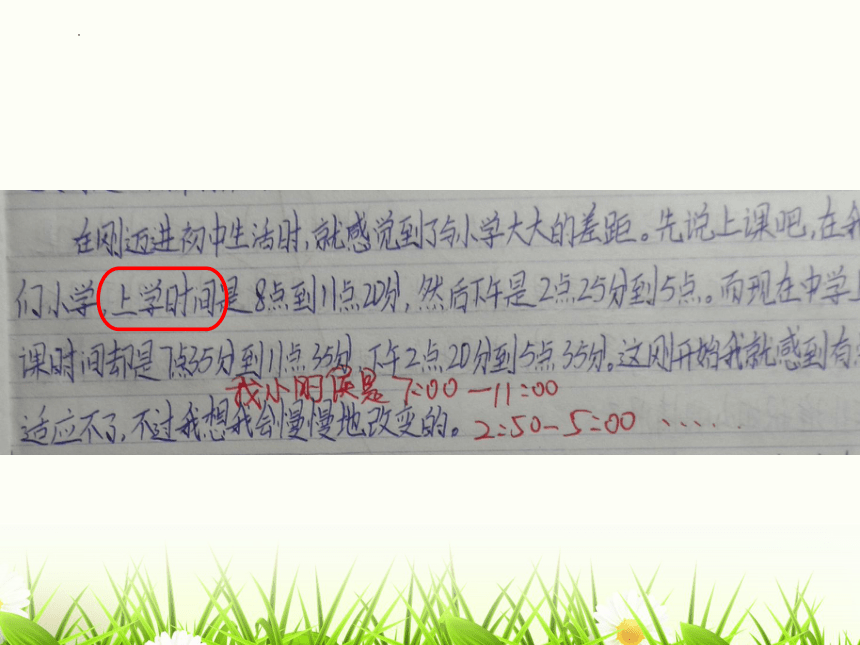 在刚迈进初中生活时,就感觉到了与小学大大的差距。先说上课吧,在我
们小学,上学时间是8点到11点20分,然后下午是2点25分到5点。而现在中学上
课时间却是7点35分到11点35分,下午2点20分到5点35分。这刚开始我就感到有
我小时候是7:00—11:00
适应不了,不过我想我会慢慢地改变的。2:50-5:00 ......